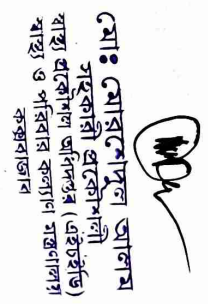 মোঃ মোরশেদুল আলম
সহকারী প্রকৌশলী
স্বাস্থ্য প্রকৌশল অধিদপ্তর (এইচইডি)
স্বাস্থ্য ও পরিবার কল্যাণ মন্ত্রণালয়
কক্সবাজার